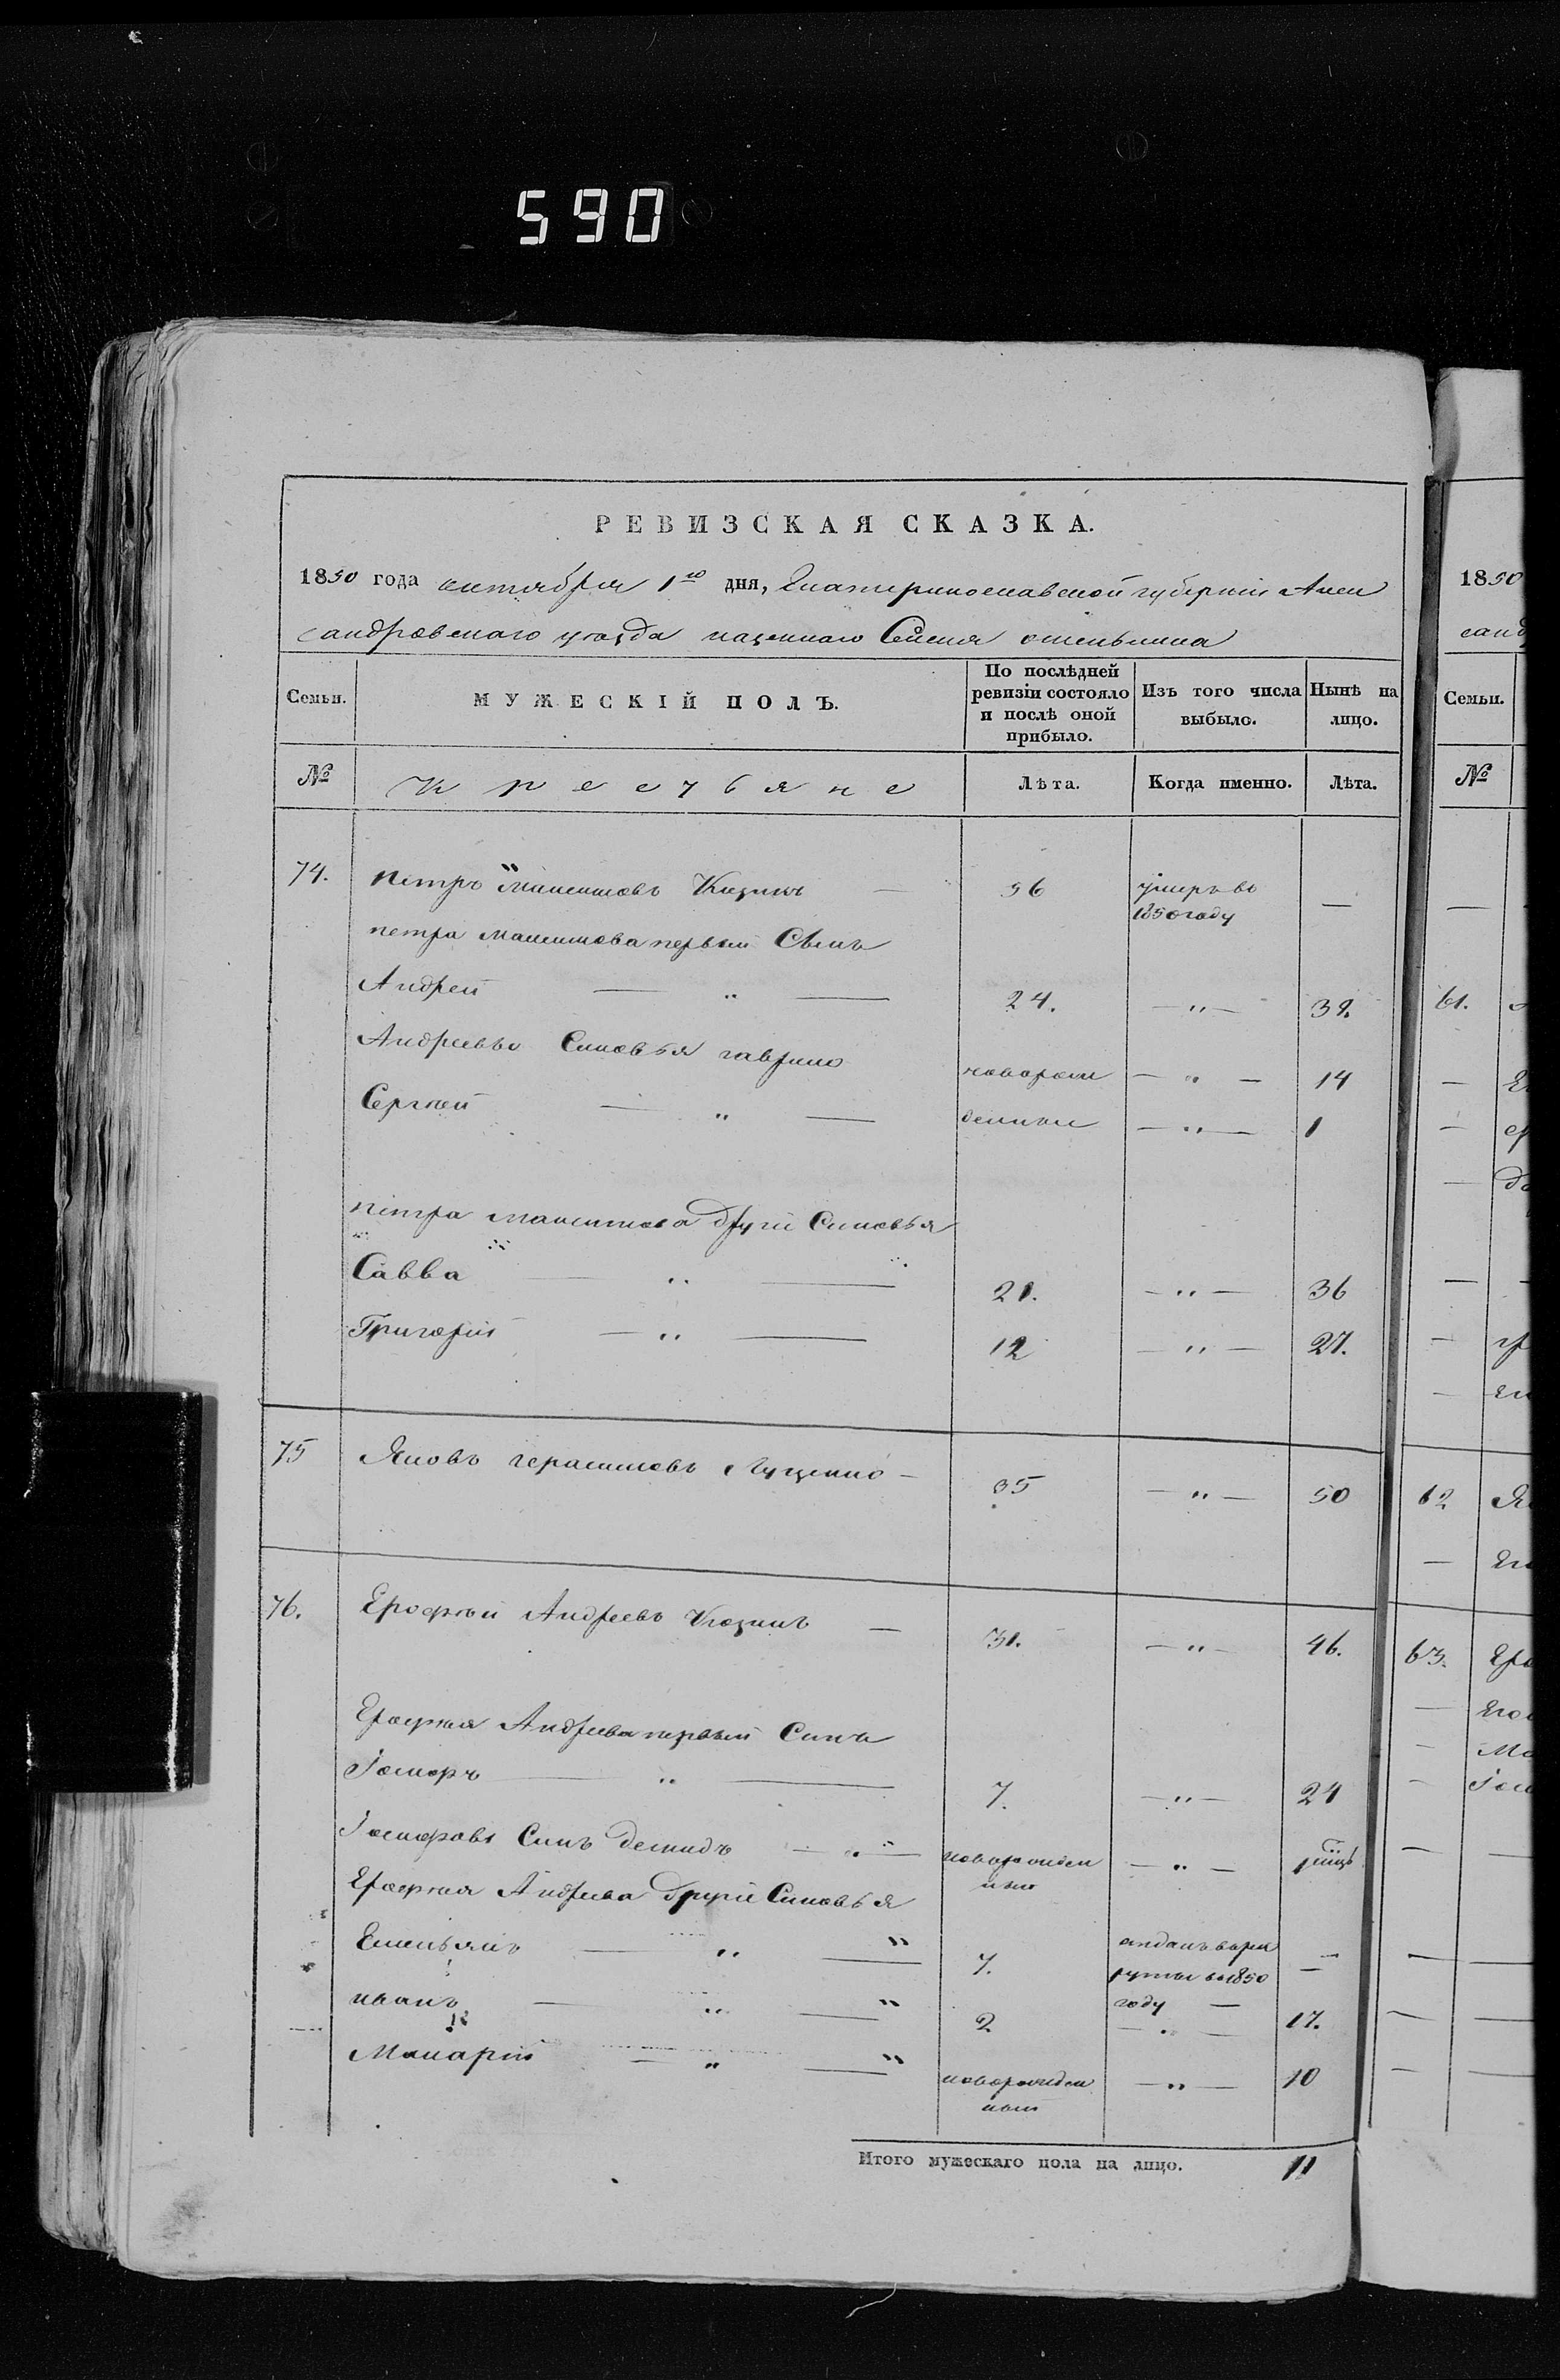 590
РЕВИЗСКАЯ СКАЗКА.
1850 года октября 1го дня, Екатеринославской губерніи Алек
сандровскаго уѣзда казеннаго Селенія
Семьи. МУЖЕСКІЙ ПОЛЪ. По послѣдней ревизіи состояло и послѣ оной прибыло. Изъ того числа выбыло. Нынѣ на лицо.
№ Крестьяне Лѣта. Когда именно. Лѣта.
74. Петръ Максимовъ — 56 умеръ во 1850 году —
петра Максимова первый Сынъ
Андрей — " — 24. — " — 39.
Андреевы Сыновья гаврило новорож — " — 14
Сергѣй — " — денные — " — 1
Петра Максимова другіе Сыновья
Савва — " — 21. — " — 36
Григорій — " — 12 — " — 27.
75 Яковъ герасимовъ Луценко — 35 — " — 50
76. Ерофѣй Андреевъ — 31. — " — 46.
Ерофѣя Андреева первый Сынъ
Іосифъ — " — 7. — " — 24
Іосифовъ Сынъ демидъ — " — новорожден ный — " —
Ерофѣя Андреева другіе Сыновья
Емельянъ — " — " 7. отданъ в рек руты во 1850 году —
иванъ — " — " 2 — " — 17.
Макарій — " — " новорожден ный — " — 10
Итого мужескаго пола на лицо. 11
1850
санд
Семьи.
№
61.
62
63.